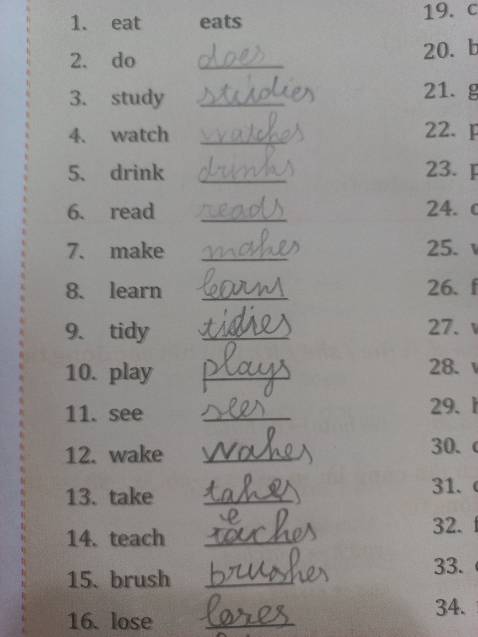 1. eat eats 19.
2. do does 20. b
3. study studies 21. g
4. watch watches 22. p
5. drink drinks 23. p
6. read reads 24.
7. make makes 25. v
8. learn learns 26. f
9. tidy tidies 27. v
10. play plays 28. v
11. see sees 29. h
12. wake wakes 30.
13. take takes 31.
14. teach teaches 32. f
15. brush brushes 33.
16. lose loses 34.